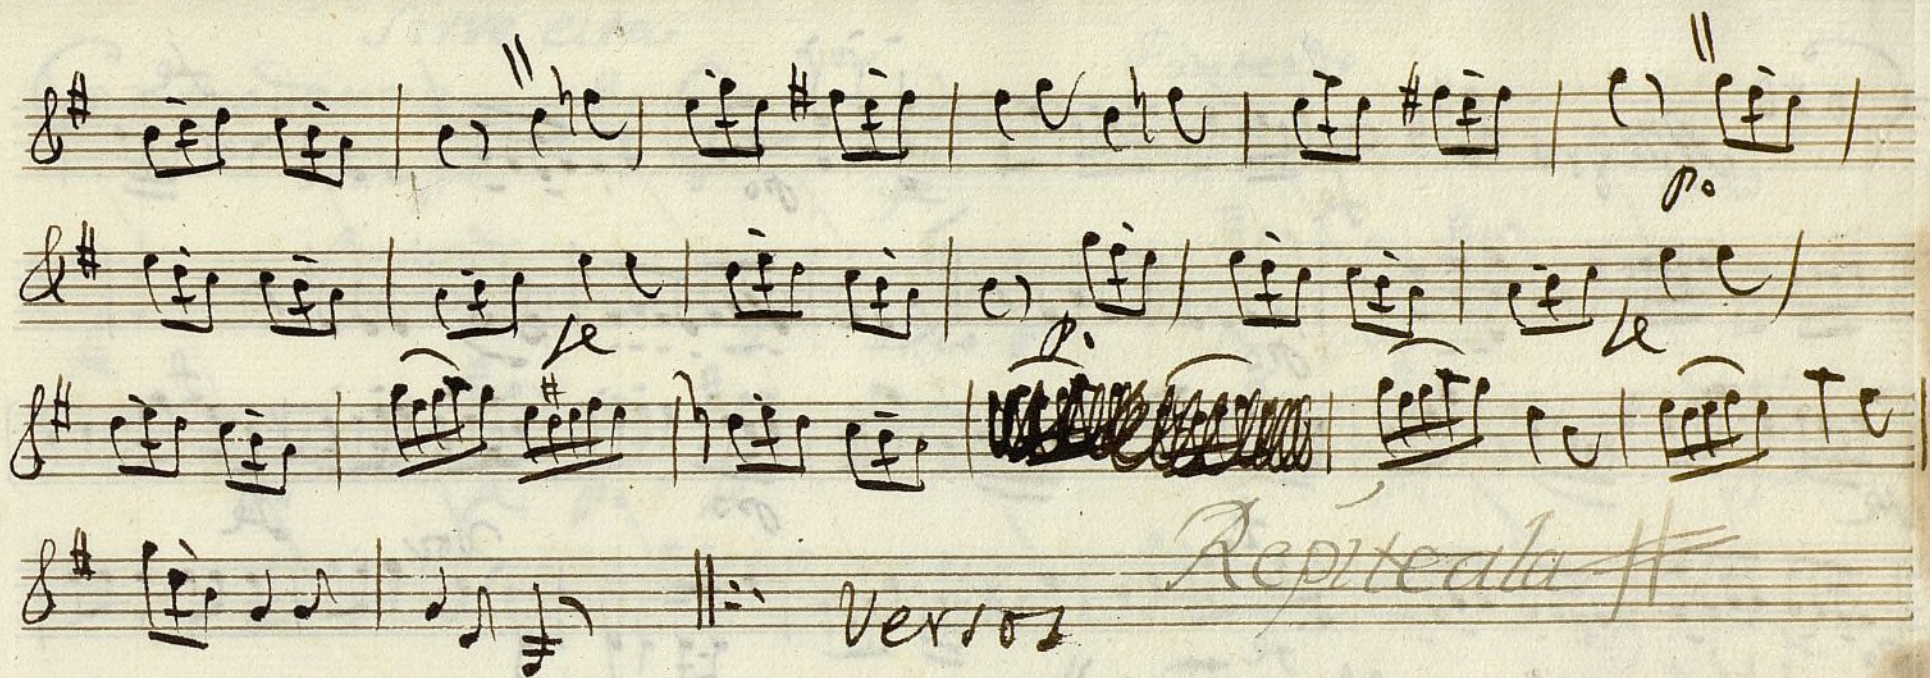 p.
fe p. fe
Repiteala
Versos